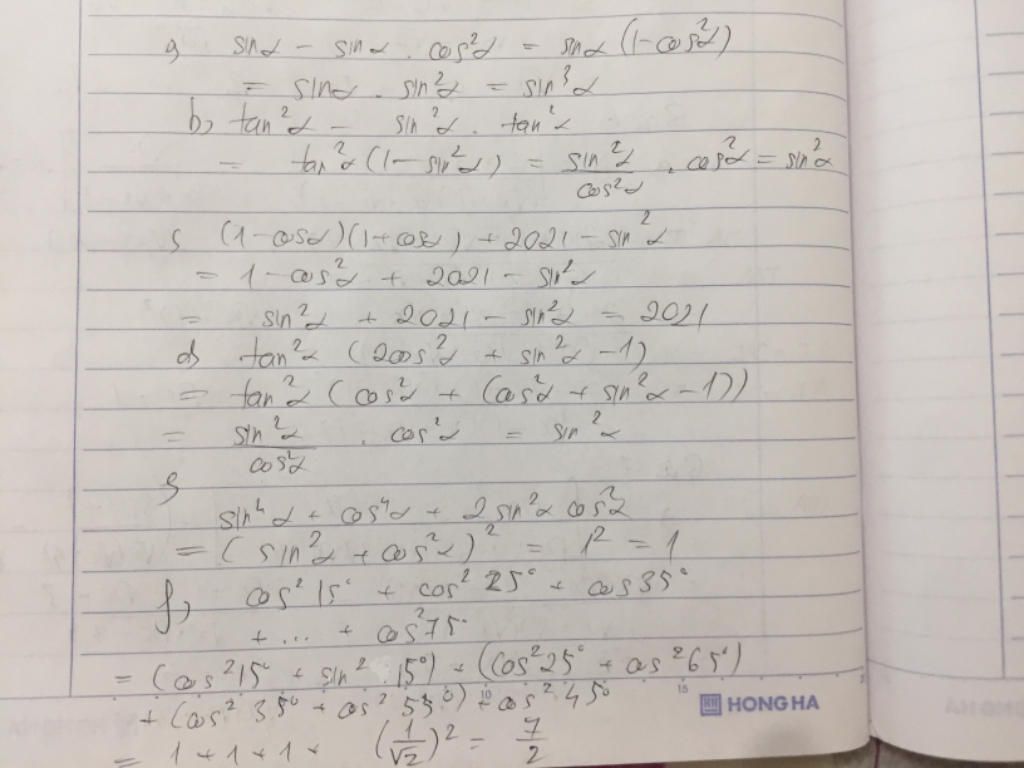 a, sinα - sinα . cos²α = sinα (1-cos²α)
= sinα . sin²α = sin³α
b, tan²α - sin²α . tan²α
= tan²α (1 - sin²α) = sin²α/cos²α . cos²α = sin²α
c, (1-cosα)(1+cosα) + 2021 - sin²α
= 1 - cos²α + 2021 - sin²α
= sin²α + 2021 - sin²α = 2021
d, tan²α (2cos²α + sin²α - 1)
= tan²α (cos²α + (cos²α + sin²α - 1))
= sin²α/cos²α . cos²α = sin²α
e,
sin⁴α + cos⁴α + 2 sin²α cos²α
= (sin²α + cos²α)² = 1² = 1
f, cos²15° + cos²25° + cos35°
+ ... + cos²75°
= (cos²15° + sin²15°) + (cos²25° + cos²65°)
+ (cos²35° + cos²55°) + cos²45°
= 1 + 1 + 1 + (1/√2)² = 7/2
10 15 HONG HA